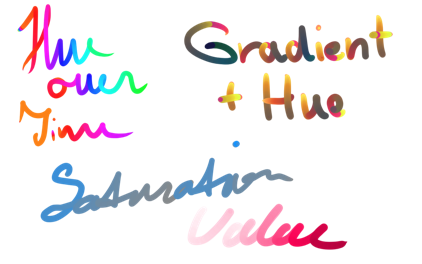 Hue
over
Time
Gradient
+ Hue
Saturation
Value